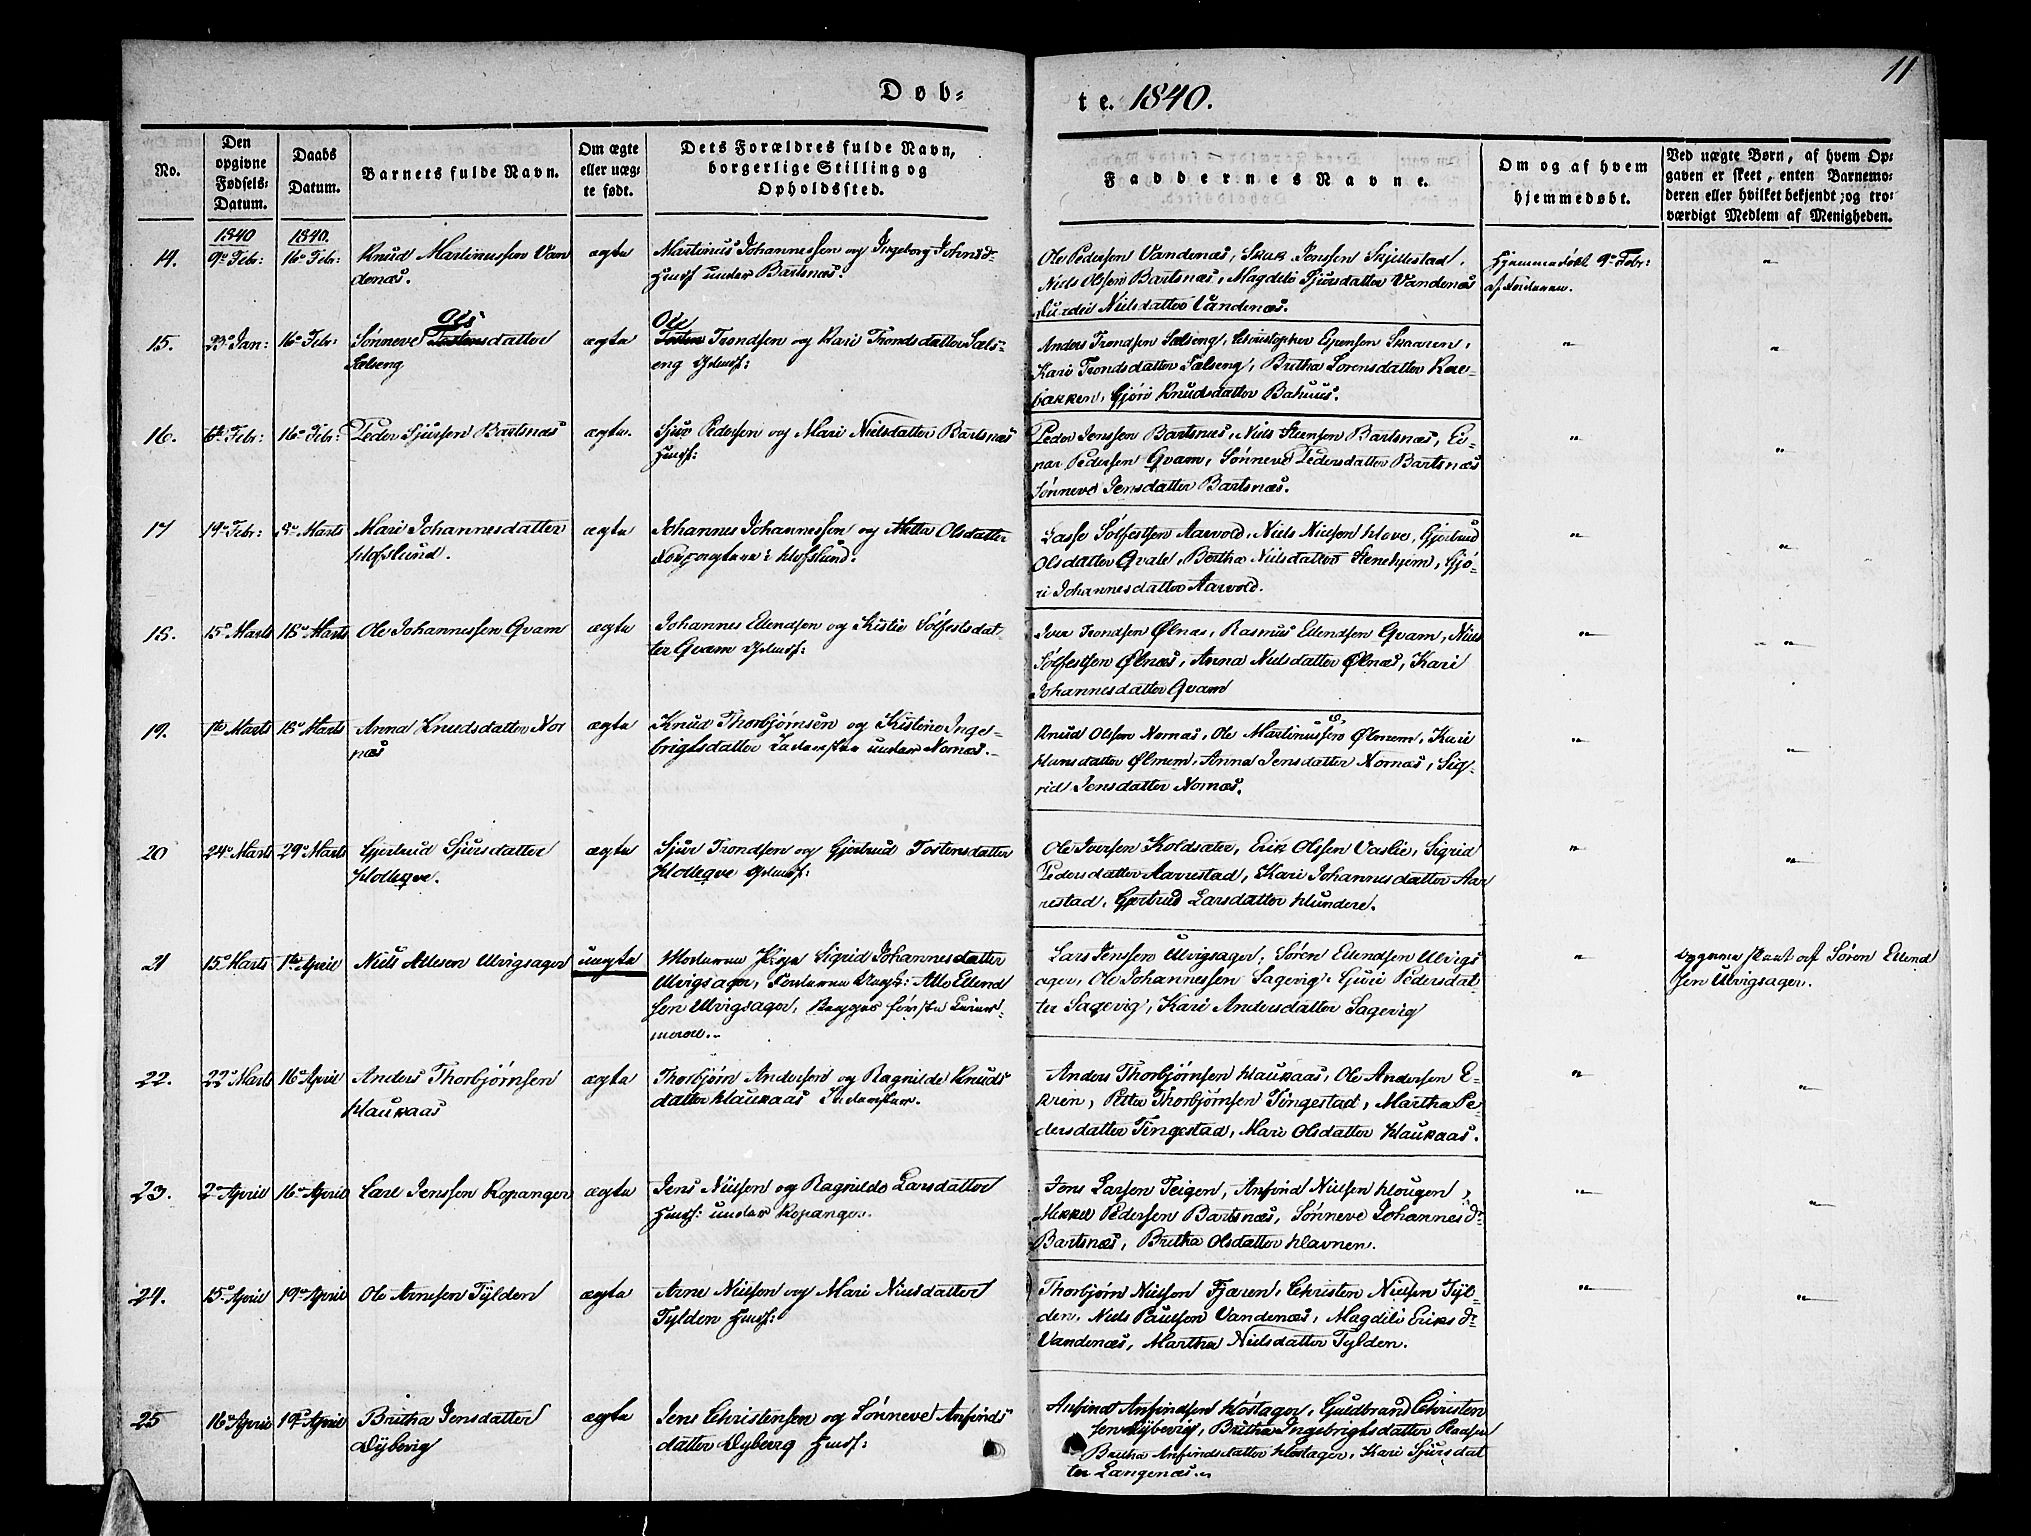 11
Døb-
te. 1840.
No.
Den opgivne Fødsels-Datum.
Daabs Datum.
Barnets fulde Navn.
Om ægte eller uægte født.
Dets Forældres fulde Navn, borgerlige Stilling og Opholdssted.
Faddernes Navne.
Om og af hvem hjemmedøbt.
Ved uægte Børn, af hvem Opgaven er skeet, enten Barnemoderen eller hvilket bekjendt og troværdigt Medlem af Menigheden.
1840 1840.
14. 9de Febr: 16de Febr: Knud Martinussen Van
denæs.
ægte
Martinus Johannessen og Ingeborg Johnsd.
Huusf under Bartsnæs.
Ole Pedersen Vandenæs, Skak Jenssen Skjellestad,
Niels Olssen Bartsnæs, Magdeli Sjursdatter Vandenæs
Nielsdatter Vandenæs.
Hjemmedøbt 9de Febr:
af Faderen.
15. 23de Jan: 16de Febr: Sønneve Ols Tostensdatter
Sælseng
ægte
Ole
Tosten Trondsen og Kari Trondsdatter Sæls-
eng Gdmdf:
Anders Trondsen Sælseng, Christopher Espensen Skaaren,
Kari Trondsdatter Sælseng, Britha Lorensdatter
bakken, Gjøri Knudsdatter Bahuus.
16. 6te Febr: 16de Febr: Peder Sjurssen Bartsnæs
ægte.
Sjur Pedersen og Mari Nielsdatter Bartsnæs
Huusf:
Peder Jenssen Bartsnæs, Niels Steensen Bartsnæs, Ei-
nar Pedersen Qvam, Sønneve Pedersdatter Bartsnæs
Sønneve Jensdatter Bartsnæs.
17 19de Febr: 8de Marts Mari Johannesdatter
Hofslund.
ægte
Johannes Johannessen og Mette Olsdatter
Hofslund.
Lasse Sølfestsen Aarvold, Niels Nielsen Hove, Gjertrud
Olsdatter Qvale, Bertha Nielsdatter Stenehjem, Gjø-
ri Johannesdatter Aarvold.
18. 15de Marts 18de Marts Ole Johannessen Qvam
ægte
Johannes Ellendsen og Kistie Sølfestsdat-
ter Qvam Gdmdf:
Iver Trondsen Ølnæs, Rasmus Ellendsen Qvam, Niels
Sølfestsen Ølnæs, Anna Nielsdatter Ølnæs, Kari
Johannesdatter Qvam
19. 1te Marts 18de Marts Anna Knudsdatter Nor
næs
ægte
Knud Thorbjørnsen og Kistine Inge-
brigtsdatter Inderster under Nornæs.
Knud Olssen Nornæs, Ole Martinussen Ølmem, Kari
Hansdatter Ølmem, Anna Jensdatter Nornæs, Sig-
rid Jensdatter Nornæs.
20 24de Marts 29de Marts Gjertrud Sjursdatter
Holleqve.
ægte
Sjur Trondsen og Gjertrud Tostensdatter
Holleqve Gdmdf:
Ole Iversen Koldsæter, Erik Olssen Vaslie, Sigrid
Pedersdatter Aarrestad, Kari Johannesdatter Aar
restad, Gjertrud Larsdatter Hundere.
21 15de Marts 1te April Niels Attesen Ulvigsager
uægte
Moderen Pige Sigrid Johannesdatter
Ulvigsager, Faderen Ungk: Atte Ellend
sen Ulvigsager, Begges første Leier-
maal.
Lars Jenssen Ulvigsager, Søren Ellendsen Ulvigs
ager, Ole Johannessen Sagevig, Guri Pedersdat-
ter Sagevig, Kari Andersdatter Sagevig
af Søren Ellend
sen Ulvigsager.
22. 22de Marts 16de April Anders Thorbjørnsen
Haukaas
ægte
Thorbjørn Andersen og Ragnilde Knuds
datter Haukaas Inderster.
Anders Thorbjørnsen Haukaas, Ole Andersen E-
kren, Peter Thorbjørnsen Tingestad, Martha Pe-
dersdatter Tingestad, Mari Olsdatter Haukaas.
23. 2de April 16de April Carl Jenssen Kopanger
ægte
Jens Nielsen og Ragnilde Larsdatter
Huusf: under Kopanger.
Jens Larsen Teigen, Anfind Nielsen Hougen,
Mikkel Pedersen Bartsnæs, Sønneve Johannesdr
Bartsnæs, Britha Olsdatter Havnen.
24. 15de April 19de April Ole Arnesen Tylden
ægte
Arne Nielsen og Mari Nielsdatter
Tylden Huusf:
Thorbjørn Nielsen Fjæren, Christen Nielsen Tyl-
den, Niels Paulsen Vandenæs, Magdeli Eriksdr
Vandenæs, Martha Nielsdatter Tylden.
25 16de April 19de April Britha Jensdatter
Dybevig
ægte
Jens Christensen og Sønneve Anfinds
datter Dybevig Huusf:
Anfind Anfindsen Høstager, Guldbrand Christen
sen Dybevig, Britha Ingebrigtsdatter
Britha Anfindsdatter Høstager, Kari Sjursdat
ter Langenæs.